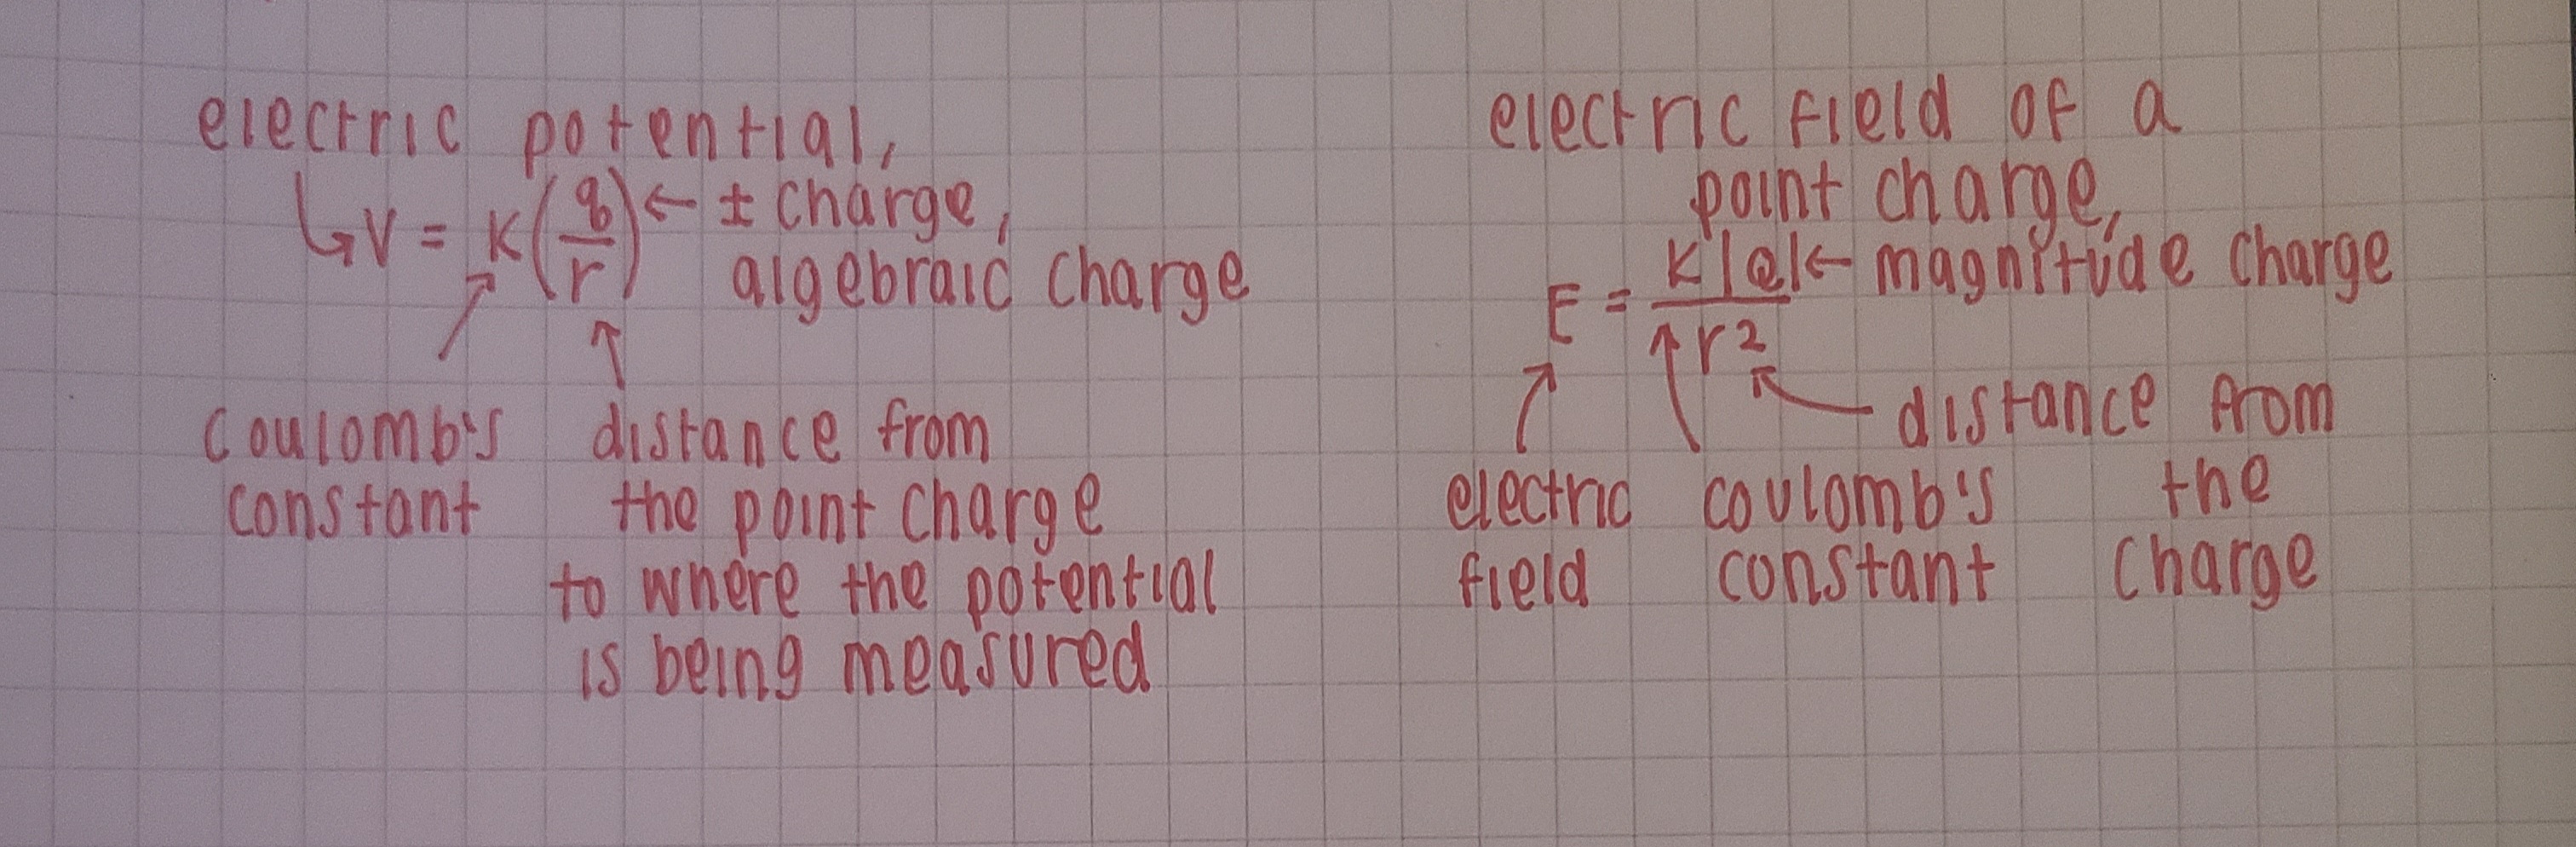 electric potential,
↳ V = K(q/r) ← ± charge,
algebraic charge
coulomb's
constant
distance from
the point charge
to where the potential
is being measured
electric field of a
point charge,
E = K|Q|/r² ← magnitude charge
electric
field
coulomb's
constant
distance from
the
charge